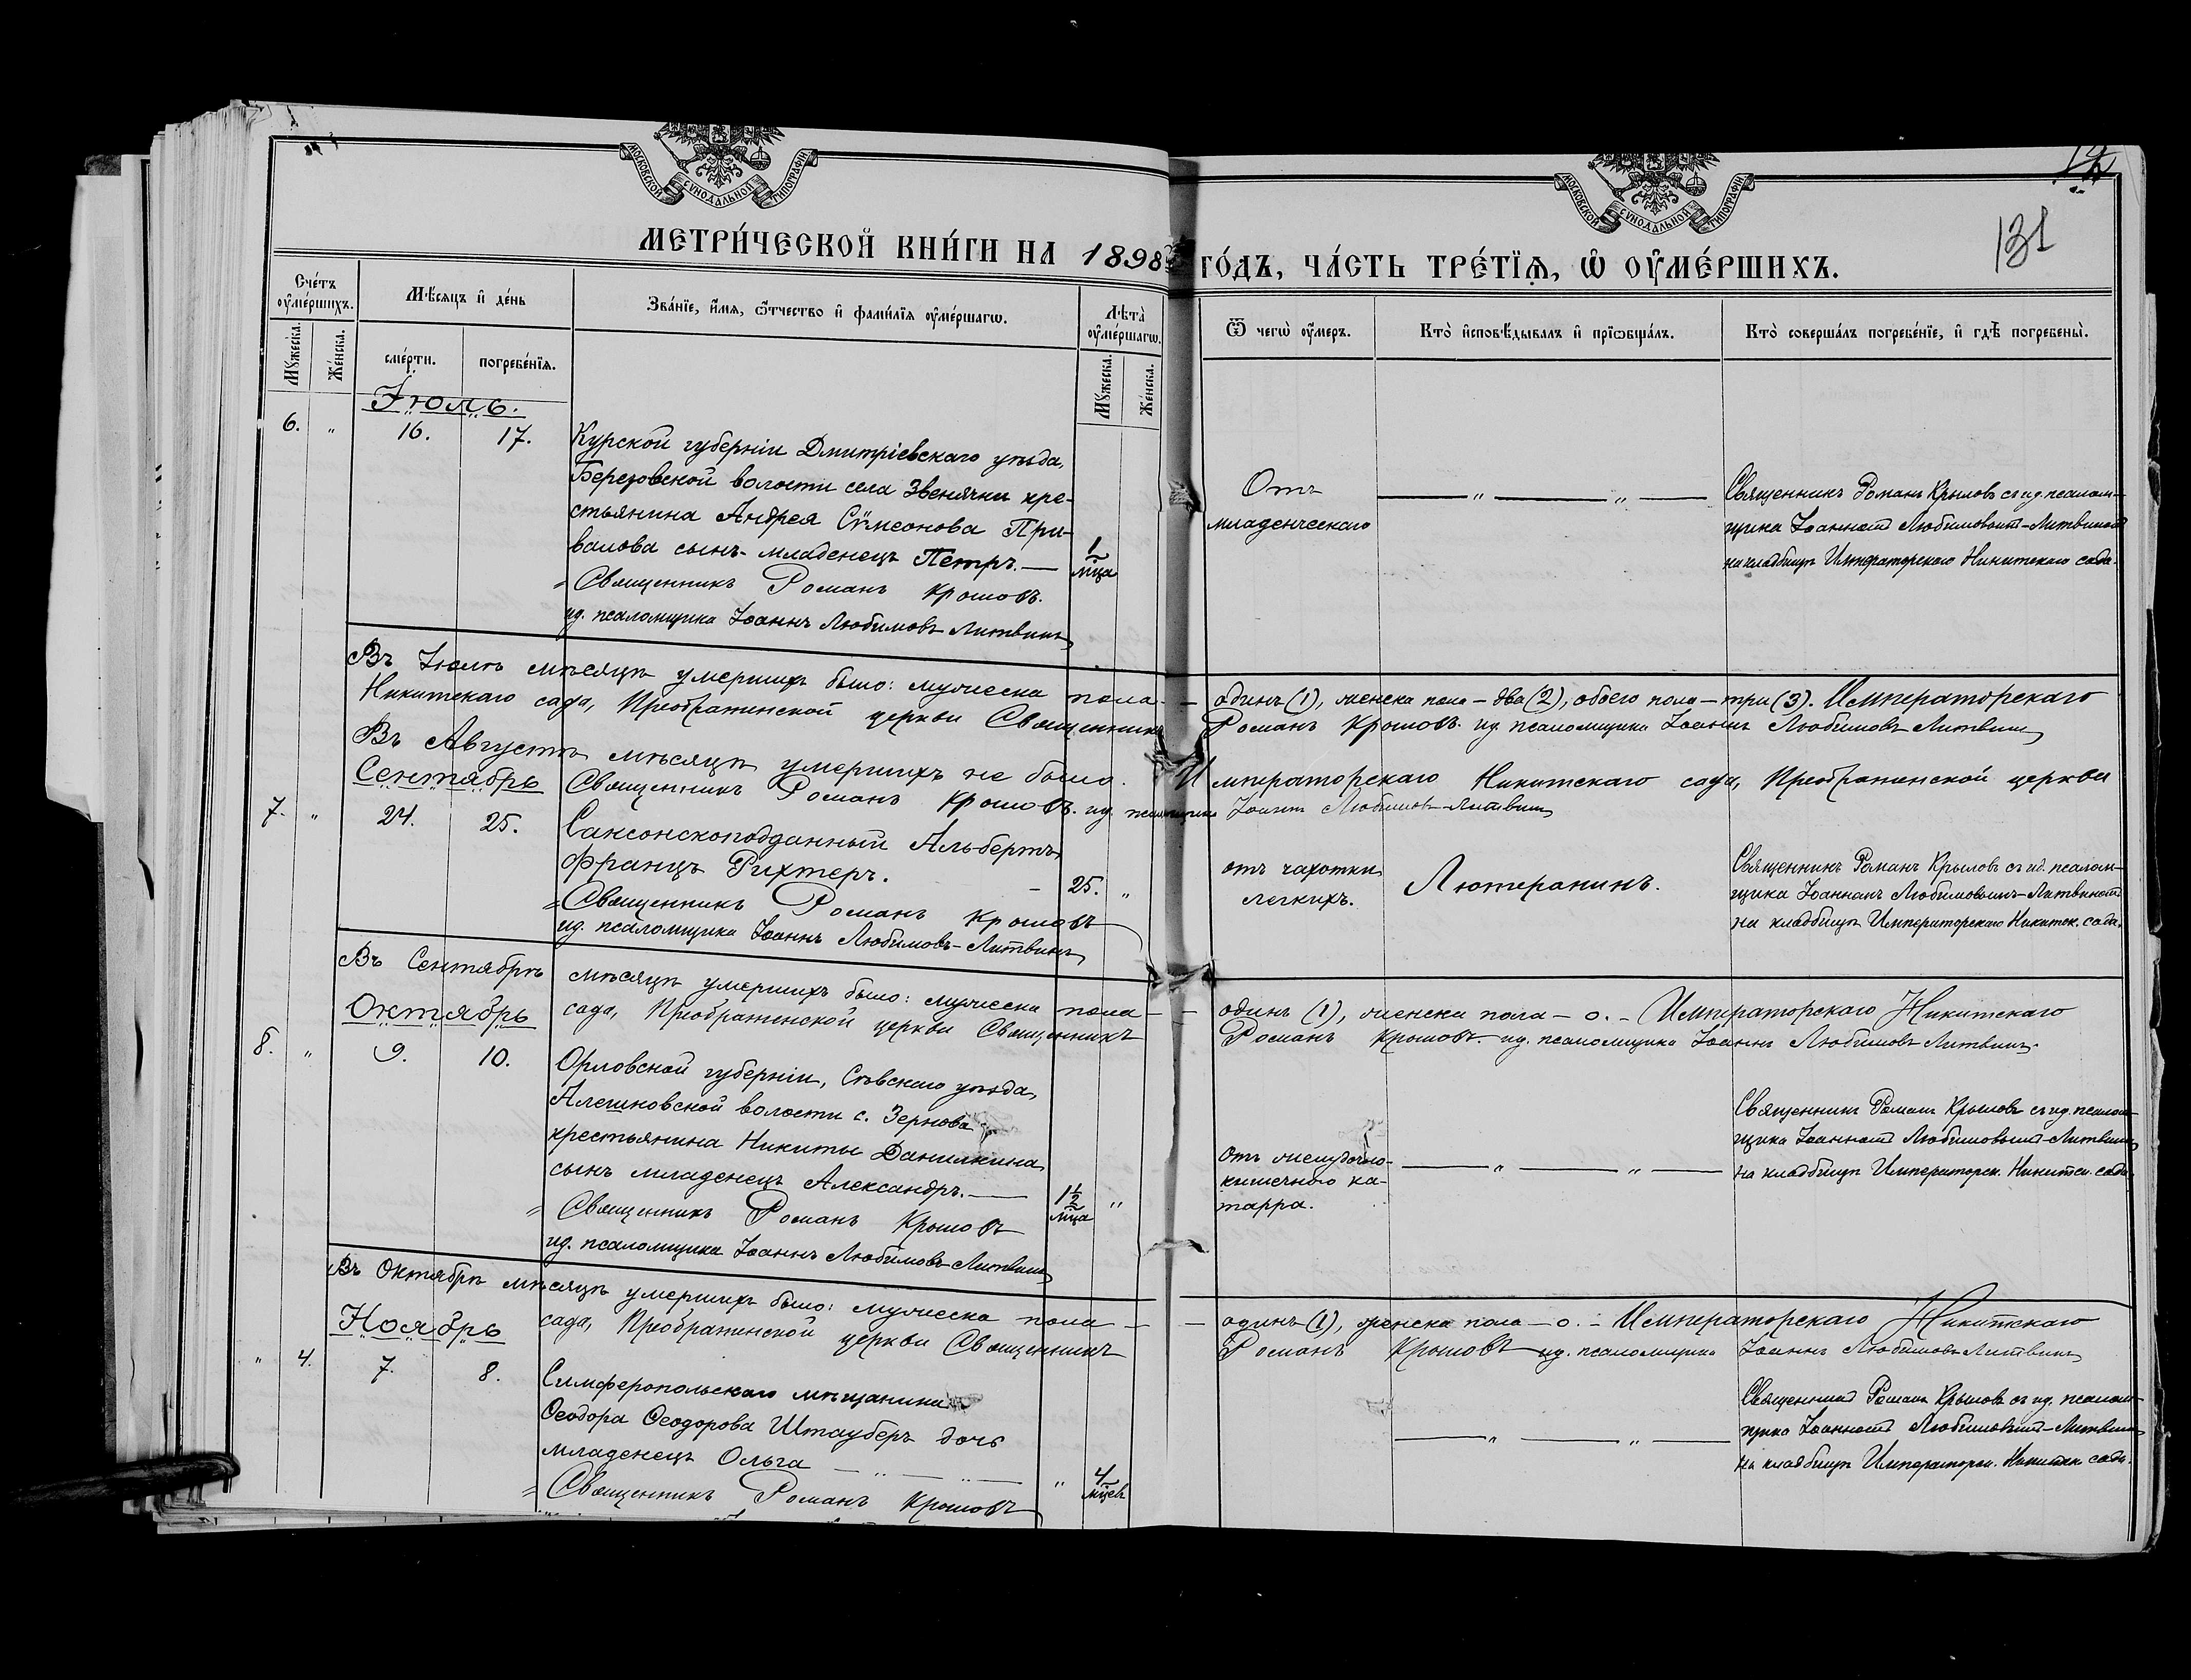 МОСКОВСКОЙ СѴНОДАЛЬНОЙ ТИПОГРАФІИ
МЕТРИ́ЧЕСКОЙ КНИ́ГИ НА 1898
Сче́тъ ᲂу҆ме́ршихъ.
Мѣ́сяцъ и҆ де́нь
Зва́нїе, и҆́мѧ, ѻ҆́тчество и҆ фами́лїѧ ᲂу҆ме́ршагѡ.
Лѣ́та ᲂу҆ме́ршагѡ.
Мꙋ́жеска.
Же́нска.
сме́рти.
погребе́нїѧ.
Мꙋ́жеска.
Же́нска.
Іюль.
6. " 16. 17.
Курской губерніи Дмитріевскаго уѣзда,
Березовской волости села Звенячки кре-
стьянина Андрея Сѵмеонова При-
валова сынъ младенецъ Петръ. —
1 мца
Священникъ Романъ Крыловъ.
ид. псаломщика Іоаннъ Любимовъ-Литвинъ
Въ Іюлѣ мѣсяцѣ умершихъ было: мужеска пола —
Никитскаго сада, Преображенской церкви Священникъ
Въ Августѣ мѣсяцѣ умершихъ не было.
Сентябрь
Священникъ Романъ Крыловъ. ид. псаломщика
7. " 24. 25.
Саксонскоподданный Альбертъ
Францъ Рихтеръ. —
25. "
Священникъ Романъ Крыловъ
ид. псаломщика Іоаннъ Любимовъ-Литвинъ
Въ Сентябрѣ мѣсяцѣ умершихъ было: мужеска пола —
сада, Преображенской церкви Священникъ
Октябрь
8. " 9. 10.
Орловской губерніи, Сѣвскаго уѣзда,
Алешковской волости с. Зернова
крестьянина Никиты Данилкина
сынъ младенецъ Александръ. —
1½ мца "
Священникъ Романъ Крыловъ
ид. псаломщика Іоаннъ Любимовъ-Литвинъ
Въ Октябрѣ мѣсяцѣ умершихъ было: мужеска пола —
сада, Преображенской церкви Священникъ
Ноябрь
" 4. 7. 8.
Симферопольскаго мѣщанина
Ѳеодора Ѳеодорова Штауберъ дочь
младенецъ Ольга — " — " —
" 4 мцевъ
Священникъ Романъ Крыловъ
131
МОСКОВСКОЙ СѴНОДАЛЬНОЙ ТИПОГРАФІИ
ГО́ДЪ, ЧА́СТЬ ТРЕ́ТЇѦ, Ѽ ОУ҆МЕ́РШИХЪ.
Ѿ чегѡ̀ ᲂу҆́меръ.
Кто̀ и҆сповѣ́дывалъ и҆ прїѡбща́лъ.
Кто̀ соверша́лъ погребе́нїе, и҆ гдѣ̀ погребены̀.
Отъ
младенческаго
— " — " —
Священникъ Романъ Крыловъ съ ид. псалом-
щика Іоанномъ Любимовымъ-Литвиномъ
на кладбищѣ Императорскаго Никитскаго сада.
одинъ (1), женска пола — два (2), обоего пола — три (3). Императорскаго
Романъ Крыловъ. ид. псаломщика Іоаннъ Любимовъ-Литвинъ
Императорскаго Никитскаго сада, Преображенской церкви
Іоаннъ Любимовъ-Литвинъ
отъ чахотки
легкихъ.
Лютеранинъ.
Священникъ Романъ Крыловъ съ ид. псалом-
щика Іоанномъ Любимовымъ-Литвиномъ
на кладбищѣ Императорскаго Никитск. сада.
одинъ (1), женска пола — 0. — Императорскаго Никитскаго
Романъ Крыловъ. ид. псаломщика Іоаннъ Любимовъ-Литвинъ.
отъ желудочно-
кишечнаго ка-
тарра.
— " — " —
Священникъ Романъ Крыловъ съ ид. псалом-
щика Іоанномъ Любимовымъ-Литвиномъ
на кладбищѣ Императорск. Никитск. сада.
одинъ (1), женска пола — 0. — Императорскаго Никитскаго
Романъ Крыловъ ид. псаломщика Іоаннъ Любимовъ-Литвинъ
— " — " —
Священникъ Романъ Крыловъ съ ид. псалом-
щика Іоанномъ Любимовымъ-Литвиномъ
на кладбищѣ Императорск. Никитск. сада.